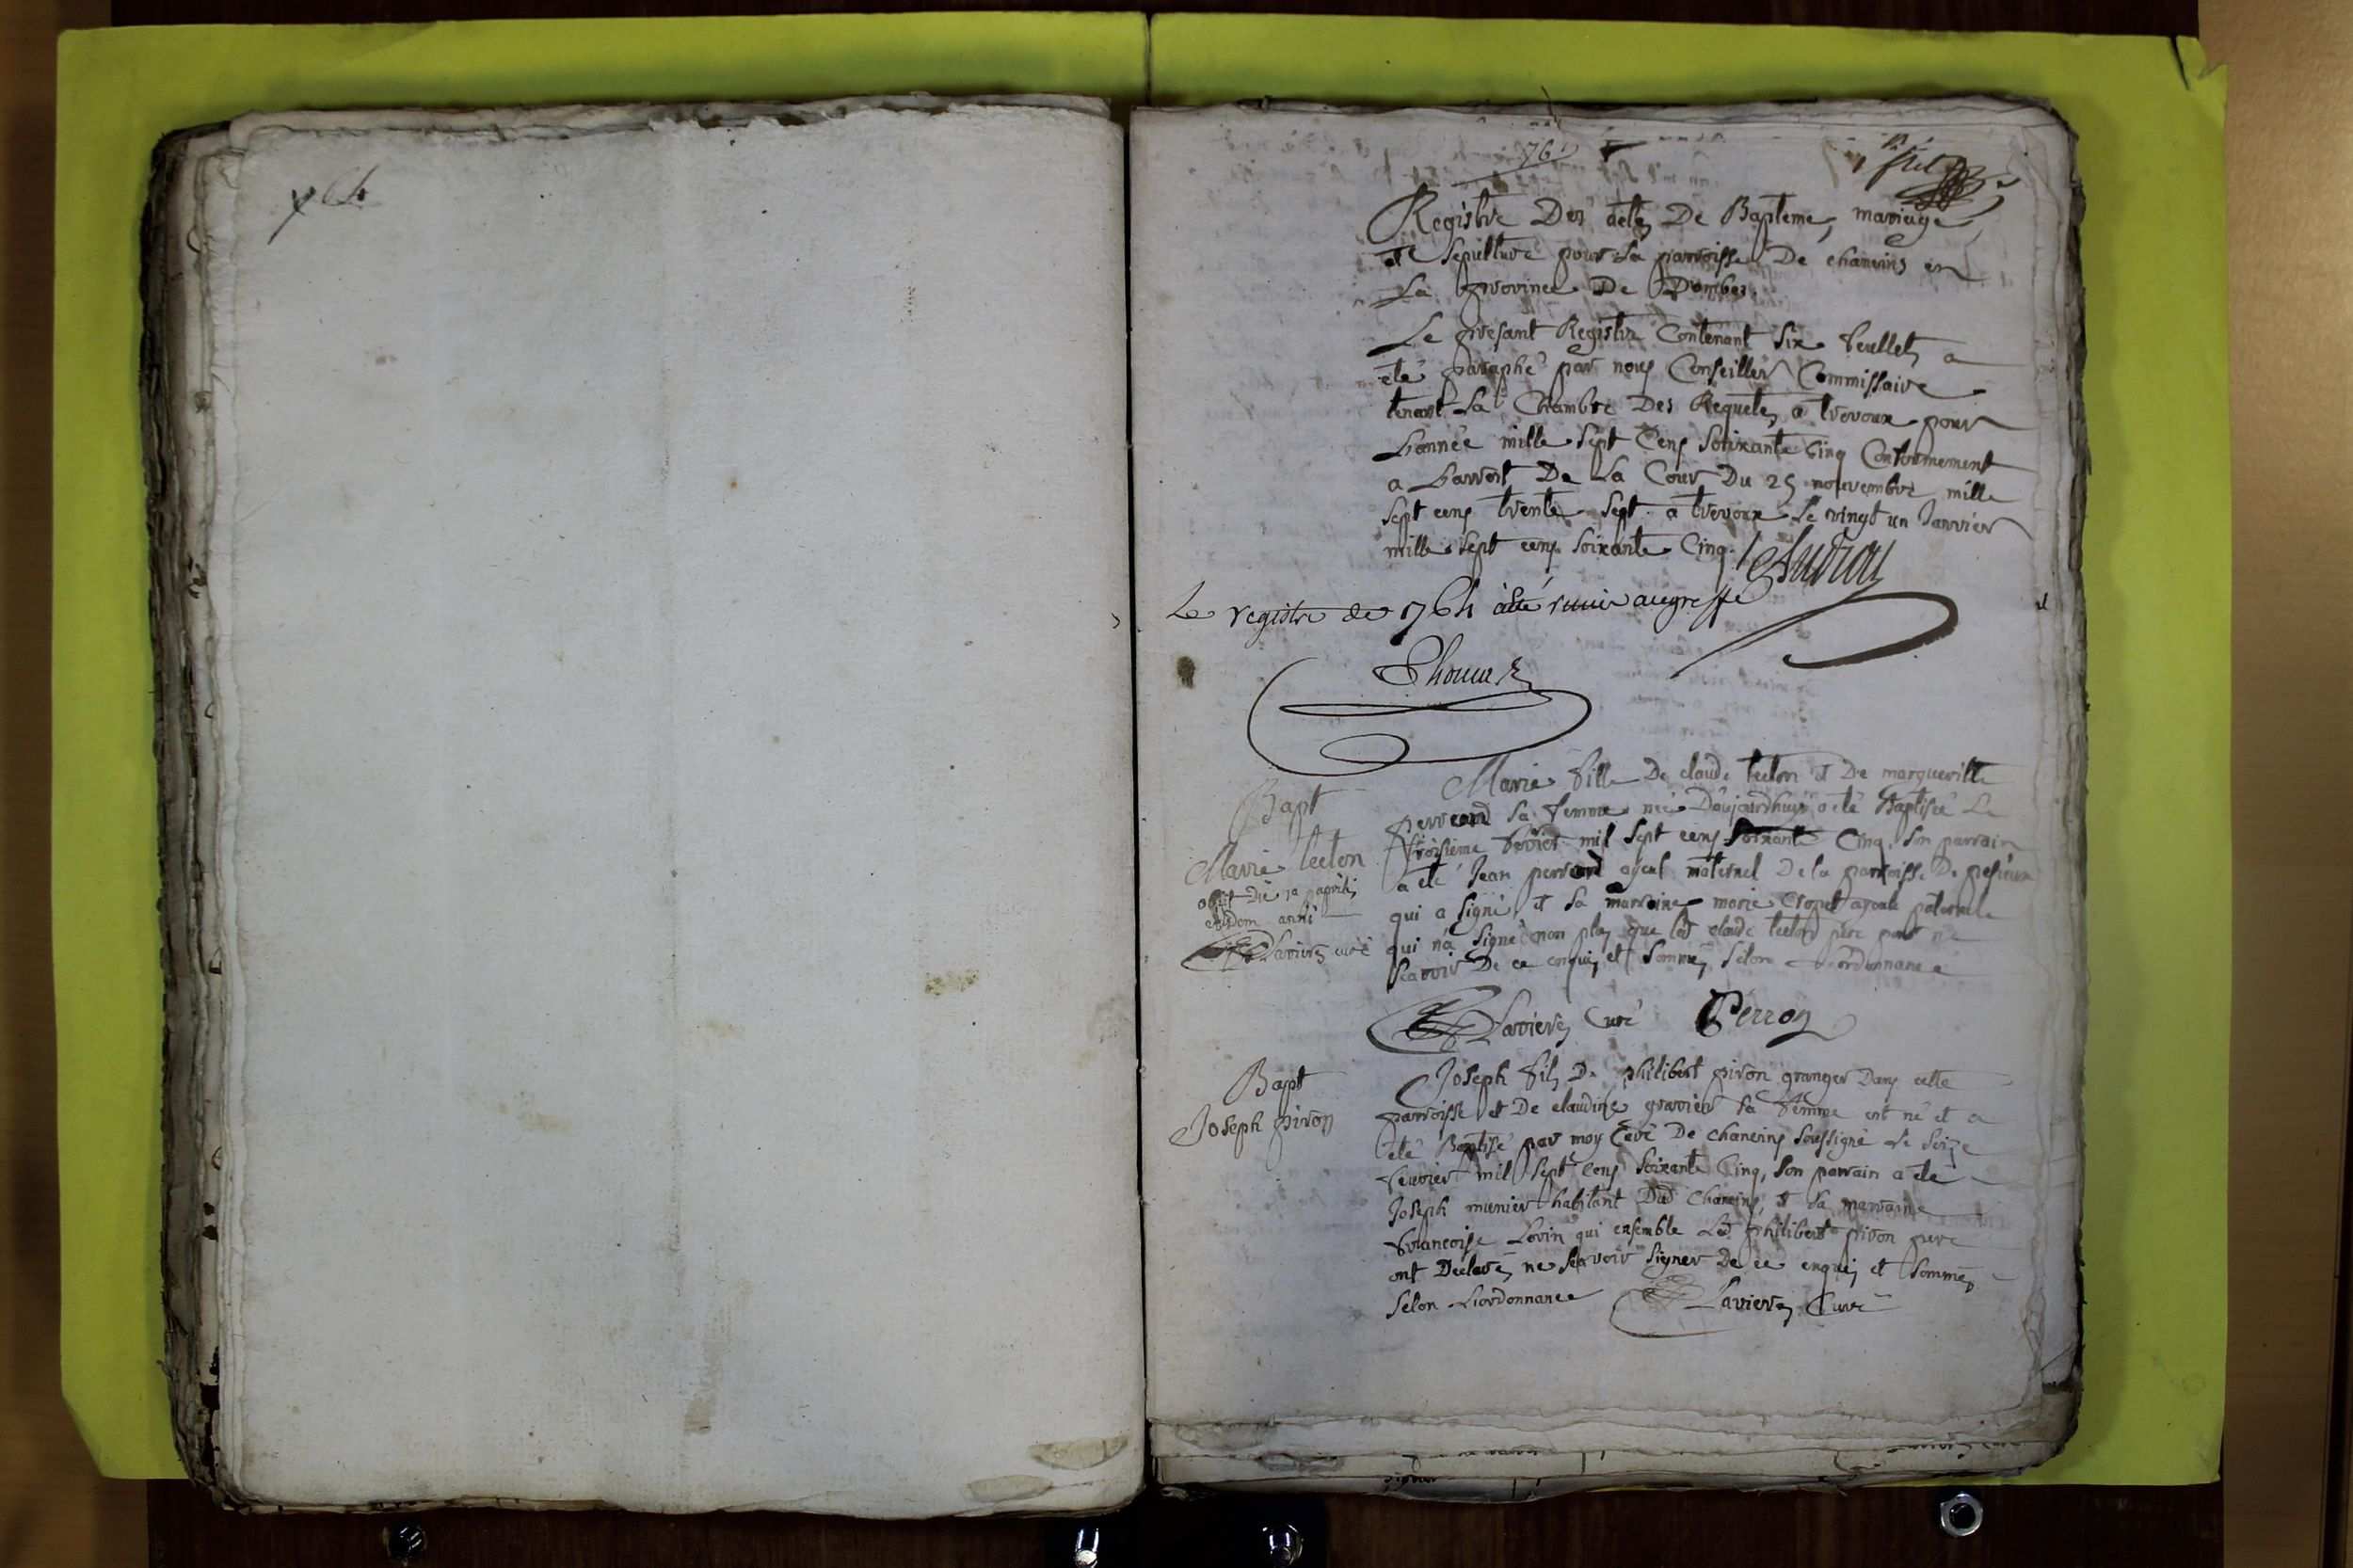 76
Registre Des actes De Bapteme, mariage
et Sepulture pour La parroisse De chaneins en
La province De Dombes.
Le presant Registre Contenant Six feullets a
eté paraphé par nous Conseiller Commissaire
tenant La Chambre Des Requetes a trevoux pour
L'année mille Sept Cens Soixante Cinq Conformement
a L'arrest De La Cour Du 25 novembre mille
Sept cens trente Sept a trevoux Le vingt un Janvier
mille Sept cens Soixante Cinq.
Le registre de 1764 a été remis au greffe
Marie fille De claude teelon et De margueritte
perrcand Sa femme neé Daujourdhuy a eté Baptisée Le
troisieme fevrier mil Sept cens Soixante Cinq, Son parrain
a eté Jean perrcand ayeul maternel De la parroisse De
qui a Signé, et Sa marraine marie ayeule paternelle
qui n'a Signé non plus que led claude père pour ne
Scavoir De ce enquis et Sommés Selon L'ordonnance
Bapt
Marie teelon
obiit die 12 aprilis
ejusdem anni
Lavieres curé
Lavieres Curé Perron
Bapt
Joseph piron
Joseph fils De philibert piron granger Dans cette
parroisse et De claudine gravier Sa femme est né et a
eté Baptisé par moy Curé De chaneins Soussigné Le Seize
feuvrier mil Sept Cens Soixante Cinq, Son parrain a eté
Joseph munier habitant Dud Chaneins, et Sa marraine
francoise Lorin qui ensemble Led philibert piron pere
ont Declarés ne Scavoir Signer De ce enquis et Sommés
Selon L'ordonnance Lavieres Curé